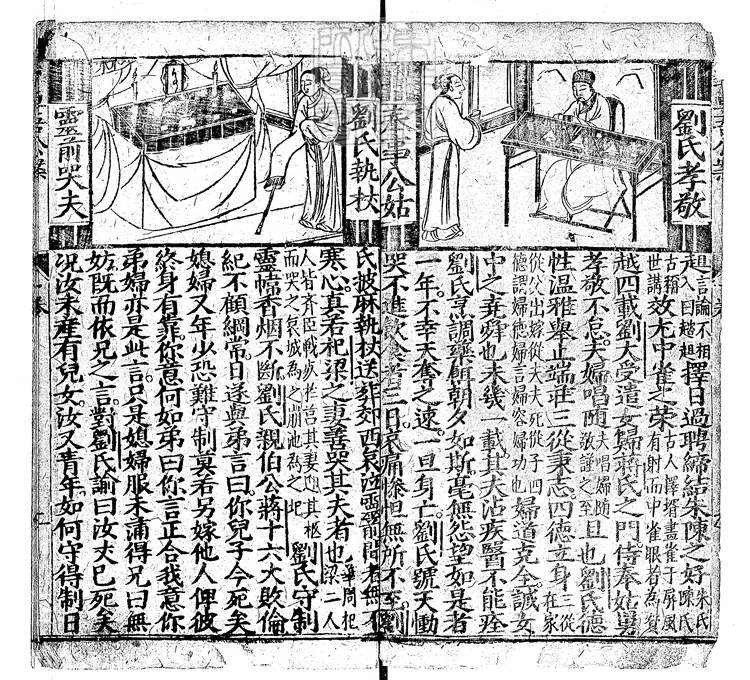 劉氏孝敬
奉事公姑
趄言論不相入曰趑趄擇日過聘締結朱陳之好朱氏陳氏
古稱世講效充中雀之荣古人擇壻畫雀于屏風有射而中雀眼者為壻
越四載劉大受遣女歸蔣氏之門侍奉姑舅
孝敬不怠夫婦唱随夫唱婦随敬謹之至且也劉氏德
性温雅舉止端莊三從秉志四德立身三從在家
從父出嫁從夫夫死從子四德謂婦德婦言婦容婦功也婦道克全誠女
中之堯舜也未幾一載其夫沾疾醫不能痊
劉氏烹調藥餌朝夕如斯毫無怨望如是者
一年不幸天奪之速一旦身亡劉氏號天慟
哭不進飲食者三日哀痛慘怛無所不至劉
劉氏執杖
靈前哭夫
氏披麻執杖送葬郊西泣靈前聞者無不
寒心真若杞梁之妻善哭其夫者也華周杞梁二人
人皆齐臣戰死於莒其妻迎其柩而哭之哀城為之崩池為之圮劉氏守制
靈幃香烟不断劉氏親伯公蔣十六大敗倫
紀不顧綱常日遂與弟言曰你兒子今死矣
媳婦又年少恐難守制莫若另嫁他人俾彼
終身有靠你意何如弟曰你言正合我意你
弟婦亦是此言只是媳婦服未蒲得兄曰無
妨既而依兄之言對劉氏諭曰汝夫已死矣
况汝未産有兒女汝又青年如何守得制日